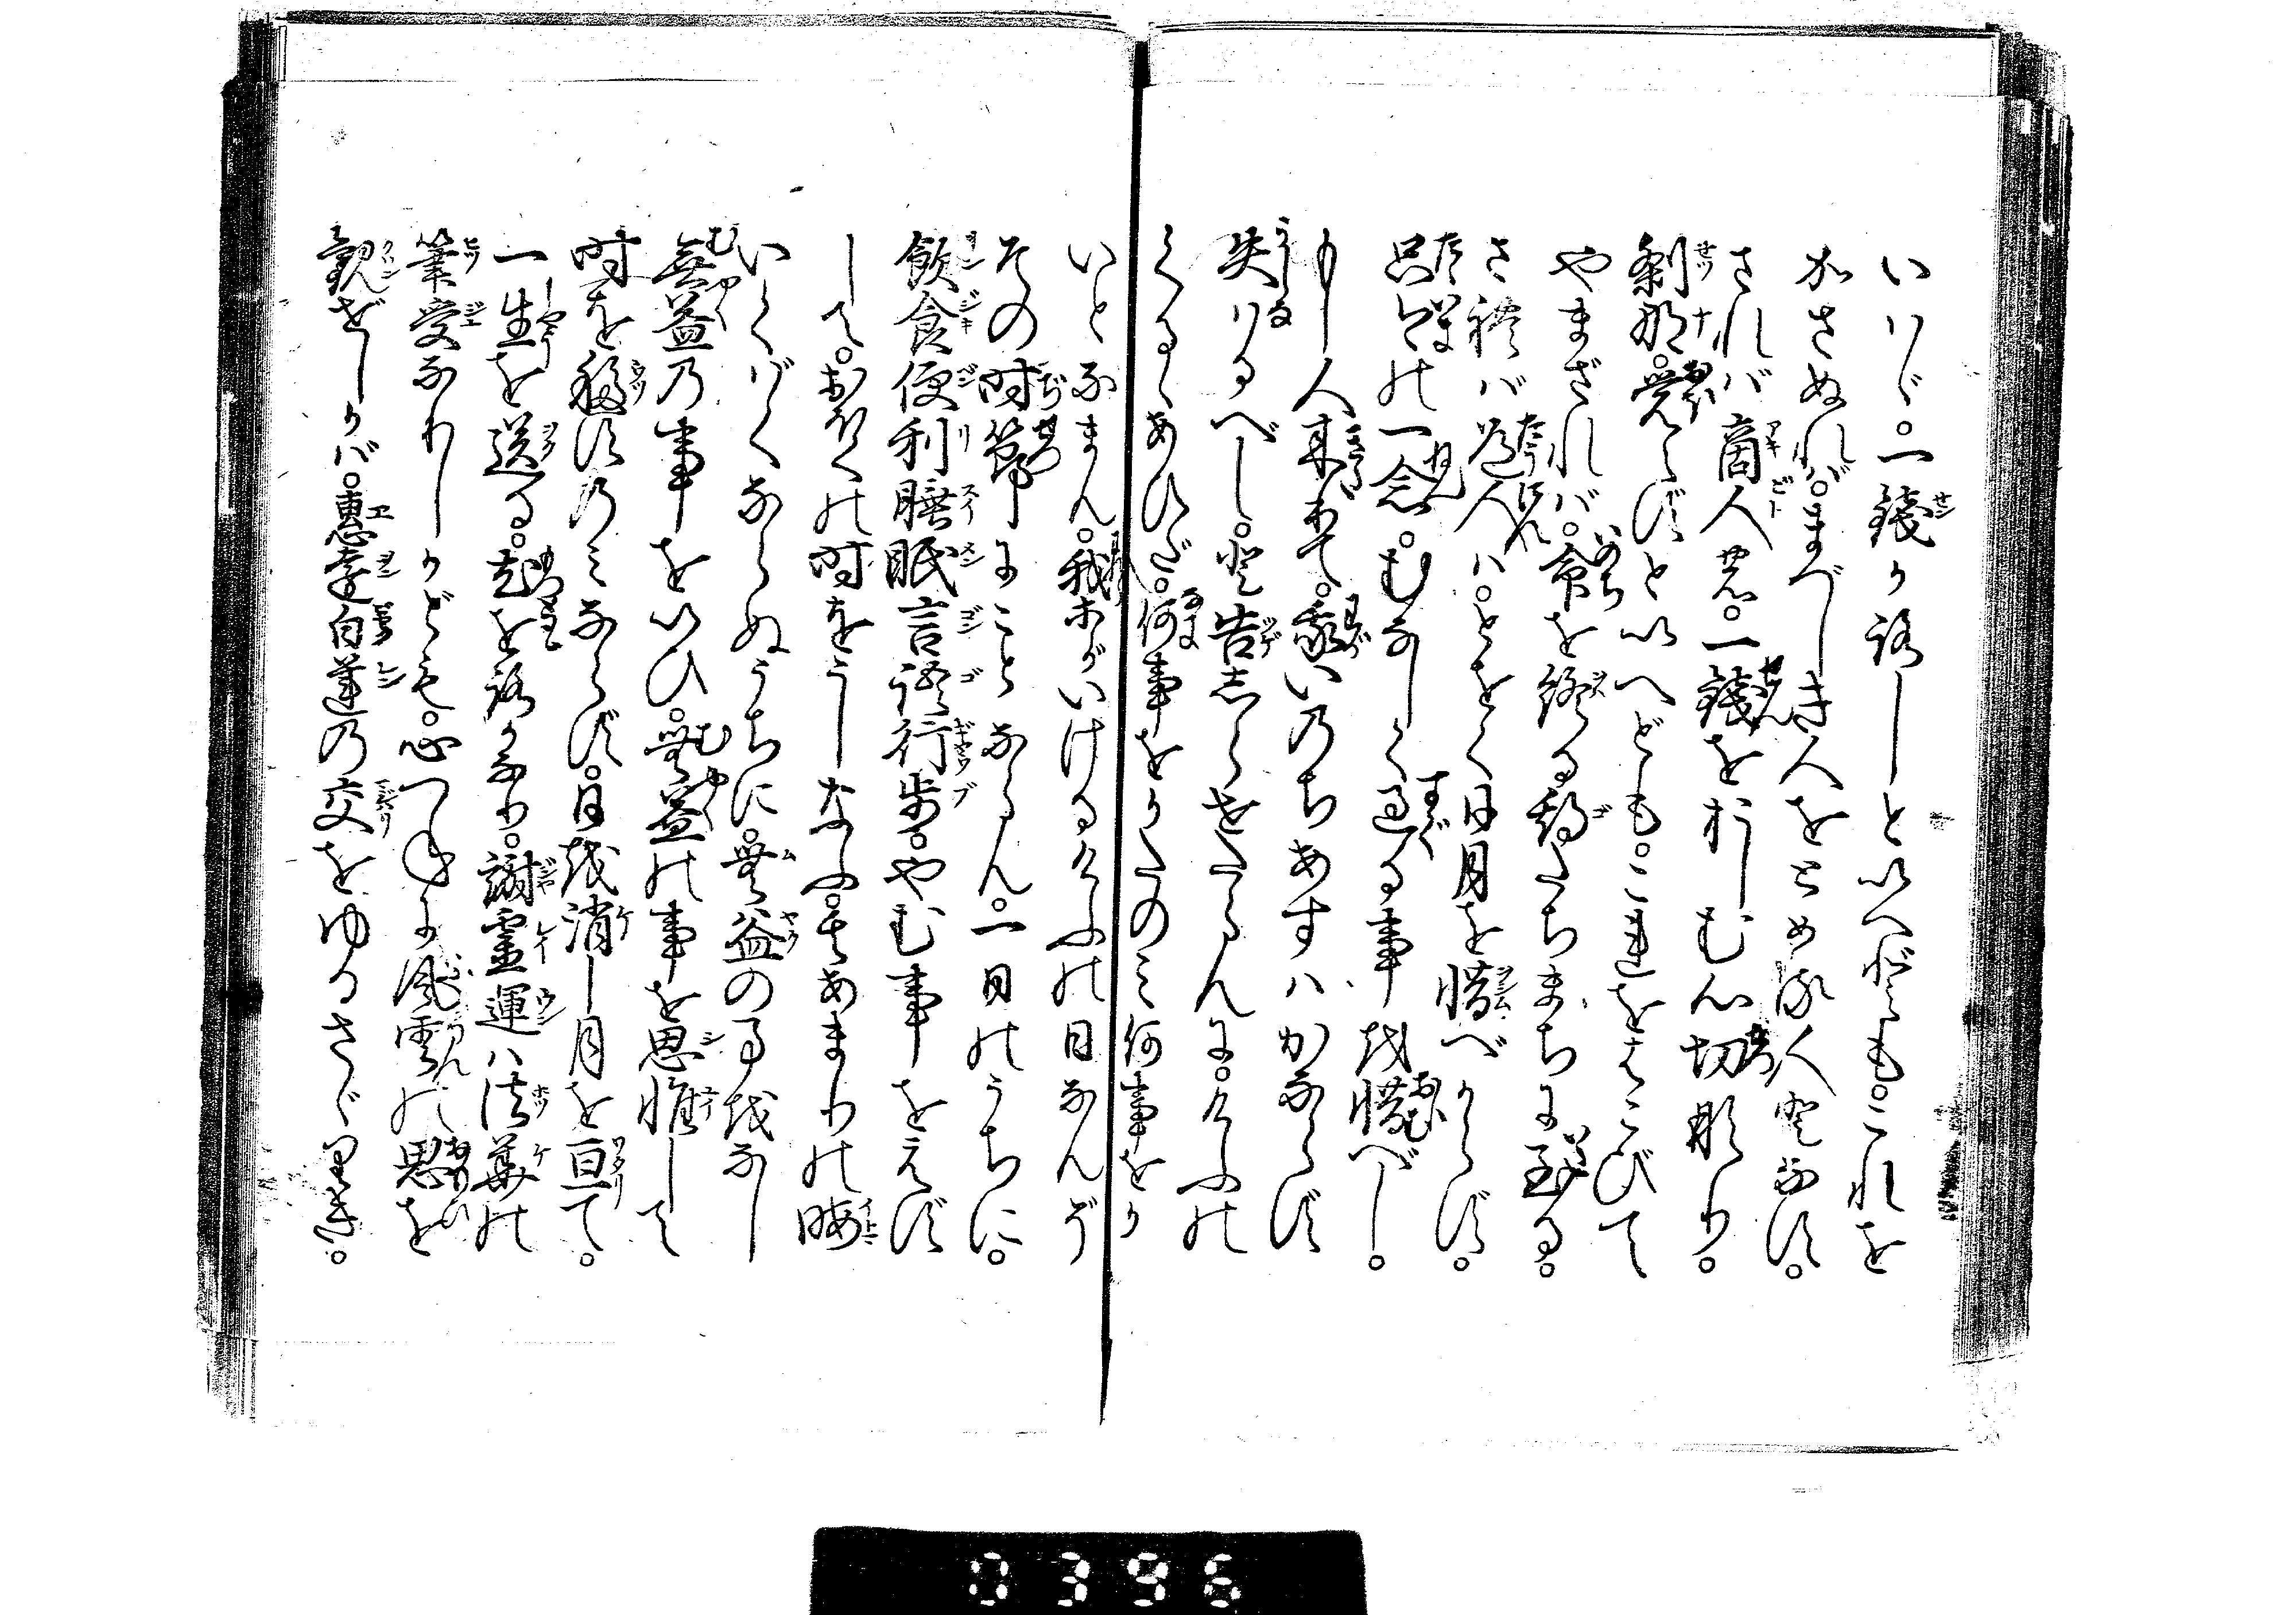 いはゞ。一錢かろしといへども。これを
かさぬれば。まづしき人をとめる人となす。
されば商人の。一錢をおしむ心切なり。
刹那。覚えずといへども。これをはこびて
やまざれば。命を終る期たちまちに至る。
されば道人は。とをく日月を惜べからず。
只今の一念。むなしく過る事を惜べし。
もし人来りて。我いのちあすはかならず
失はるべしと告しらせたらんに。けふの
くるゝあひだ。何事をかたのみ何事をか
いとなまん。我等がいけるけふの日なんぞ
その時節にことならん。一日のうちに。
飲食便利睡眠言語行歩。やむ事をえず
して。おほくの時をうしなふ。其あまりの暇
いくばくならぬうちに。無益の事をなし
無益の事をいひ。無益の事を思惟して
時を移すのみならず。日を消し月を亘て。
一生を送る。尤も愚かなり。謝霊運は法華の
筆受なりしかども。心つねに風雲の思を
観ぜしかば。惠遠白蓮の交をゆるさゞりき。
0396